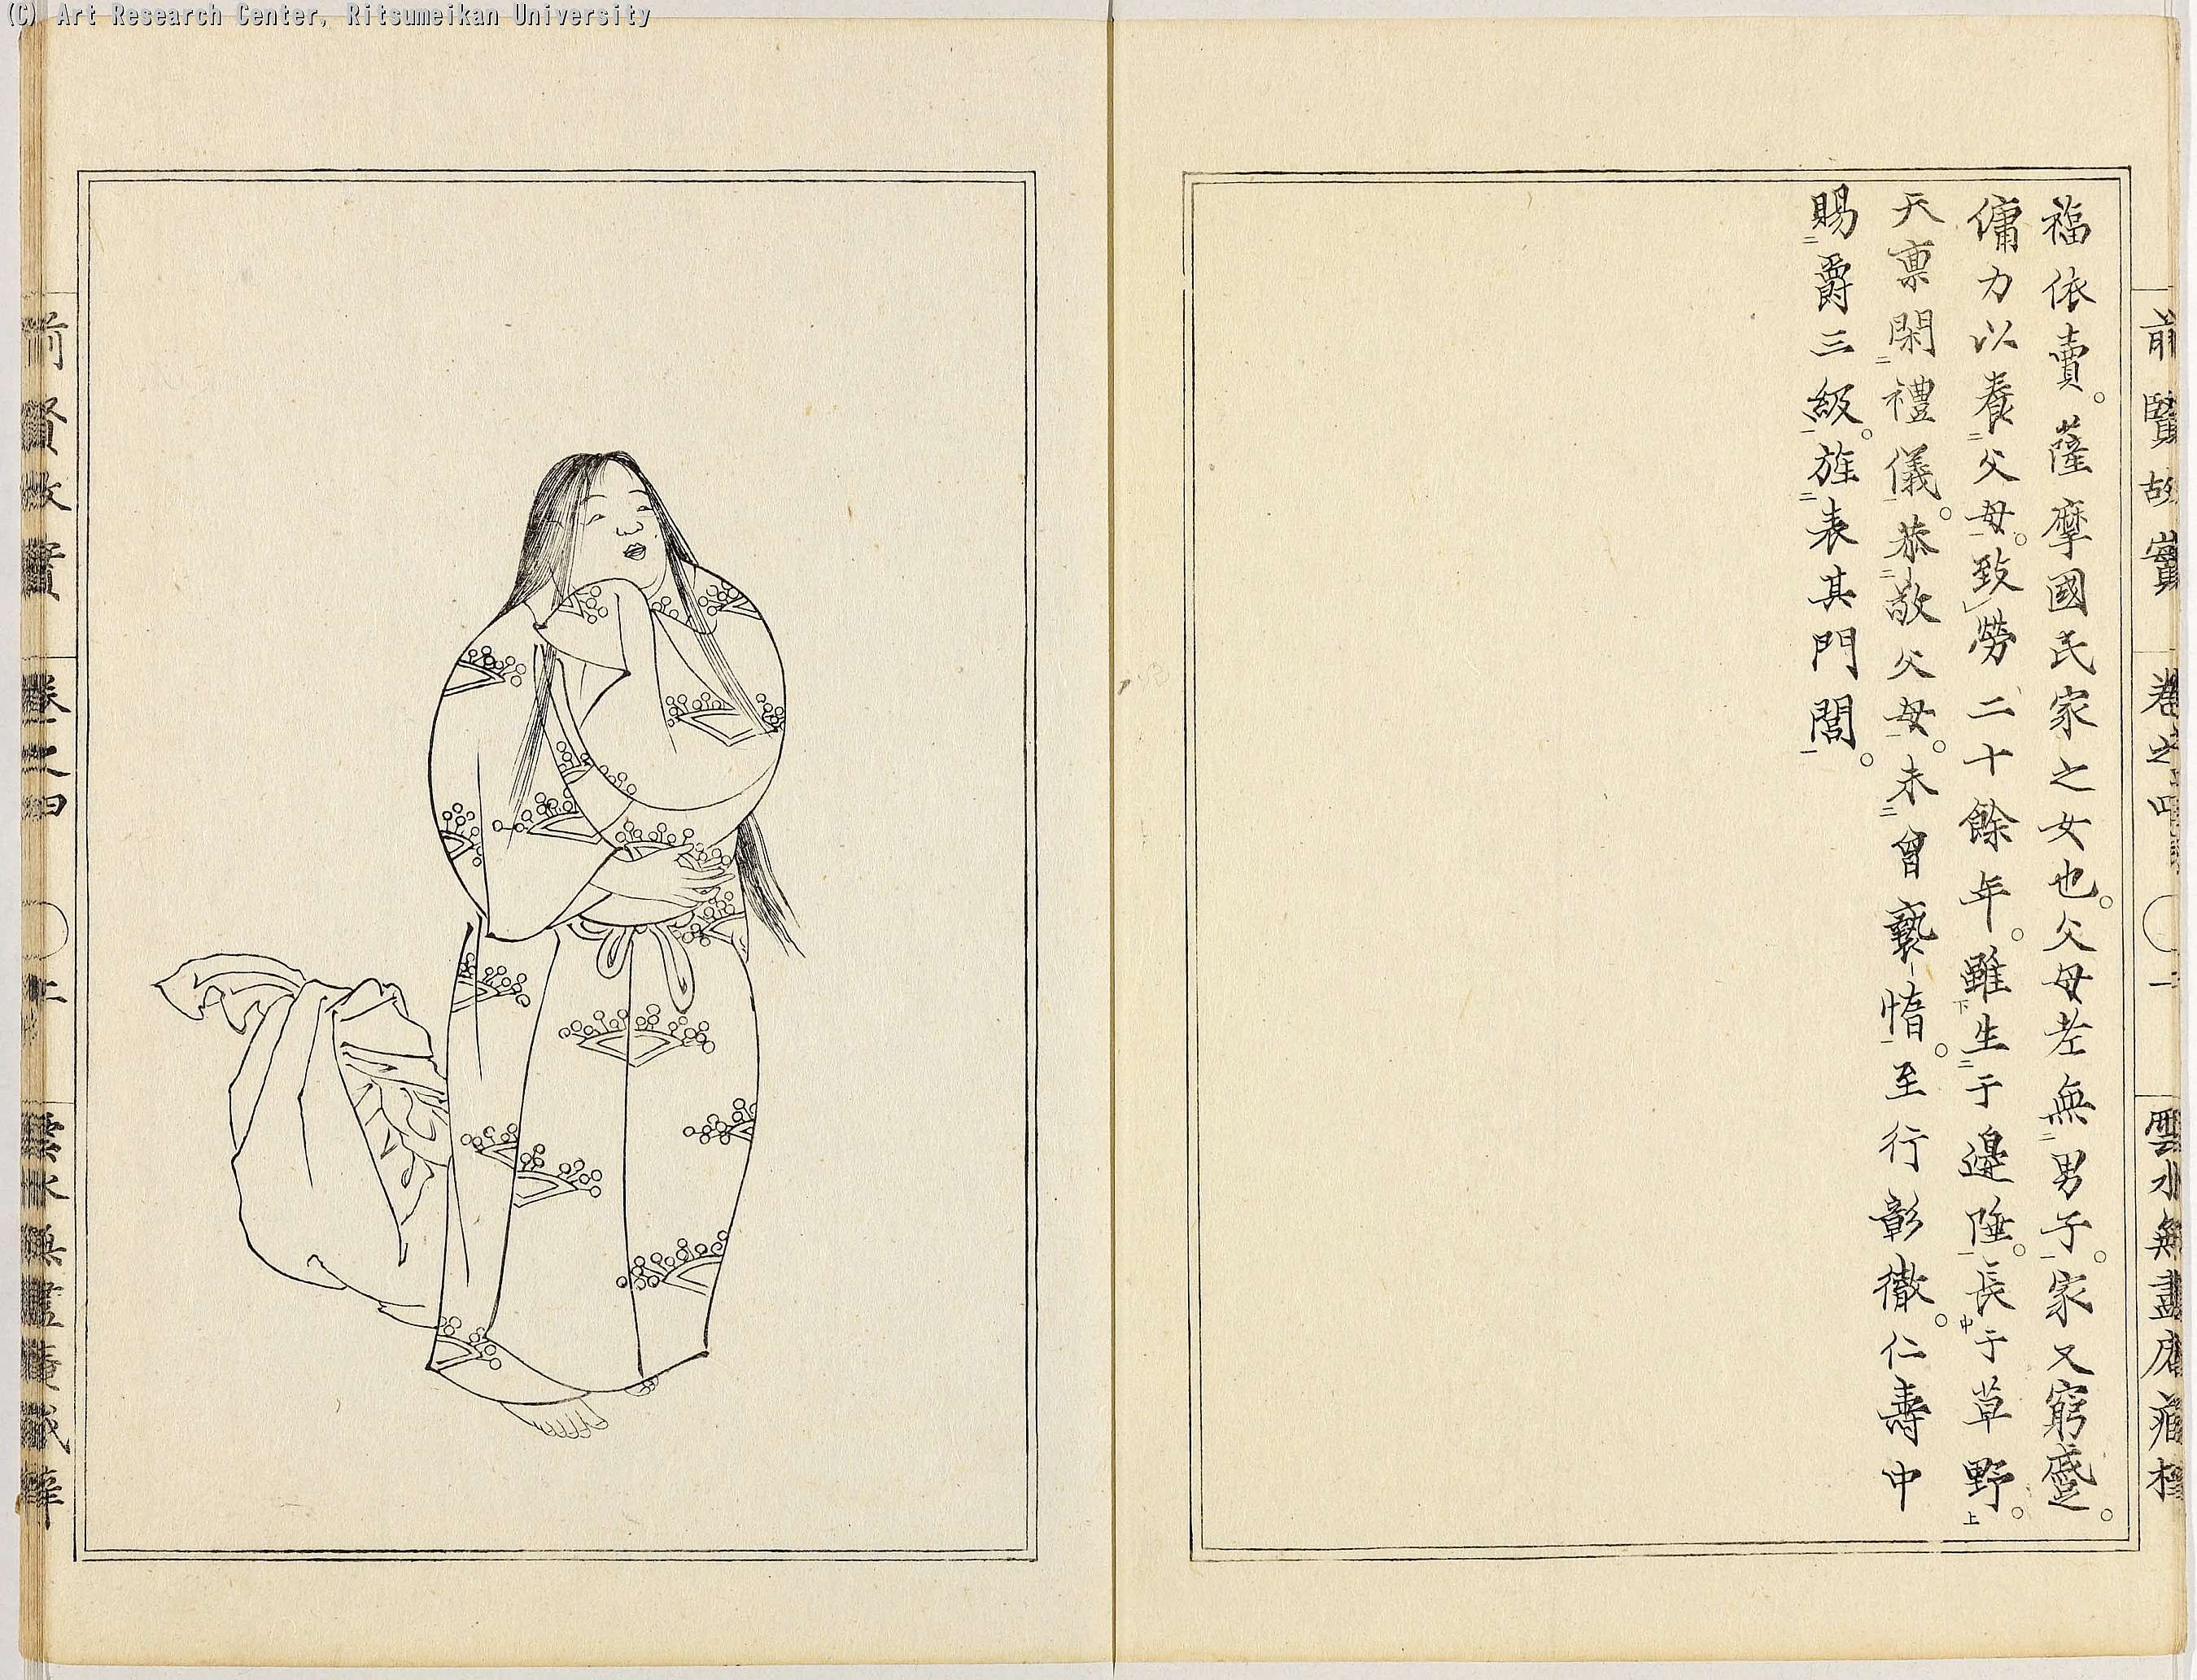 (C) Art Research Center, Ritsumeikan University
前賢故實 卷之四 雲水無盡庵藏梓
福依賣。薩摩國民家之女也。父母老無二男子一。家又窮蹙。
傭力以養二父母一。致勞二十餘年。雖下生二于邊陲一。長中于草野上。
天稟閑二禮儀一。恭二敬父母一。未三曾褻二惰一。至行彰徹。仁壽中
賜二爵三級一。旌二表其門閭一。
前賢故實 卷之四 雲水無盡庵藏梓